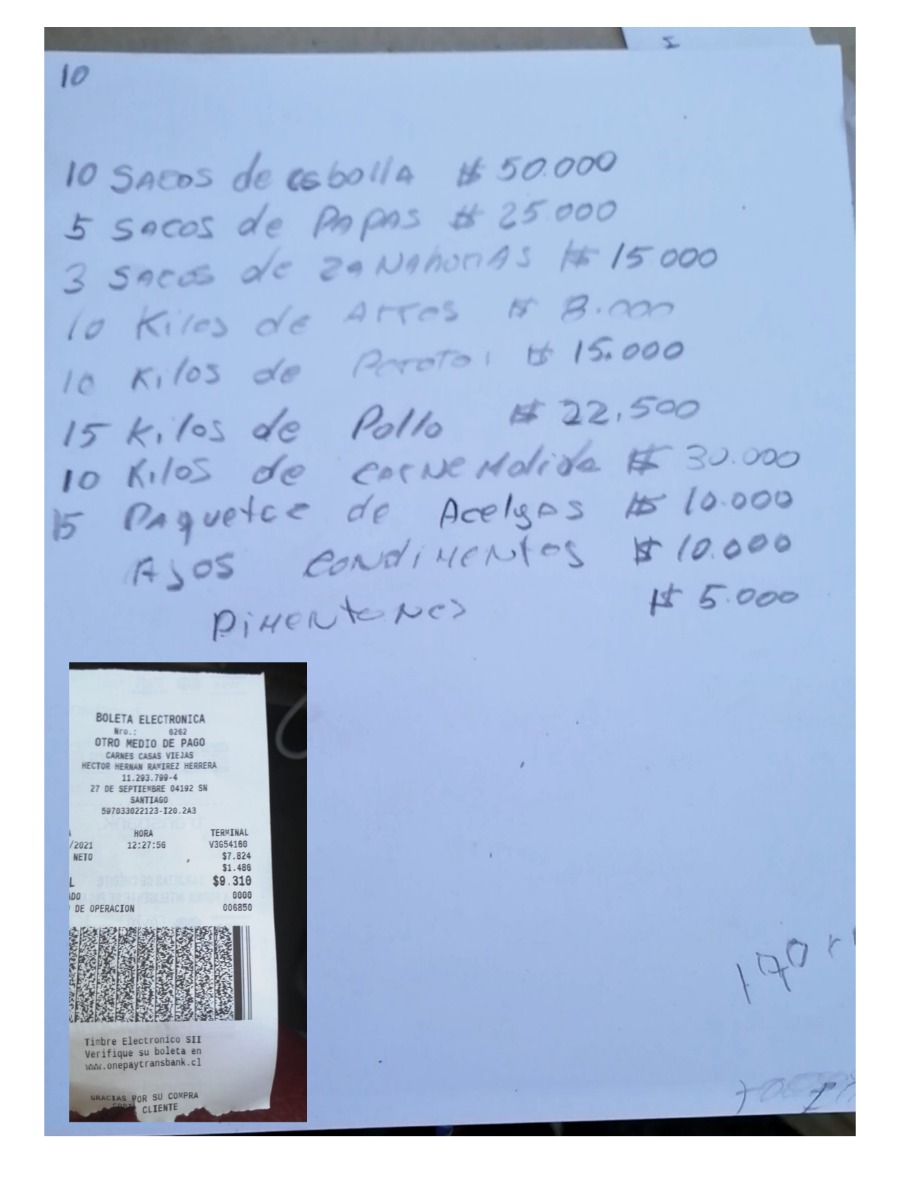 I
10
10 SACOS de cebolla $ 50.000
5 SACOS de PAPAS $ 25.000
3 SACOS de ZANAHORIAS $ 15.000
10 Kilos de Arros $ 8.000
10 Kilos de Poroto $ 15.000
15 Kilos de Pollo $ 22.500
10 Kilos de CARNE Molida $ 30.000
15 Paquetes de Acelgas $ 10.000
AJOS CONDIMENTOS $ 10.000
PIMENTONES $ 5.000
BOLETA ELECTRONICA
Nro.: 8262
OTRO MEDIO DE PAGO
CARNES CASAS VIEJAS
HECTOR HERNAN RAMIREZ HERRERA
11.293.799-4
27 DE SEPTIEMBRE 04192 SN
SANTIAGO
597033022123-I20.2A3
HORA TERMINAL
/2021 12:27:56 V3G54160
NETO $7.824
$1.486
L $9.310
ADO 0000
DE OPERACION 006850
Timbre Electronico SII
Verifique su boleta en
www.onepaytransbank.cl
GRACIAS POR SU COMPRA
CLIENTE